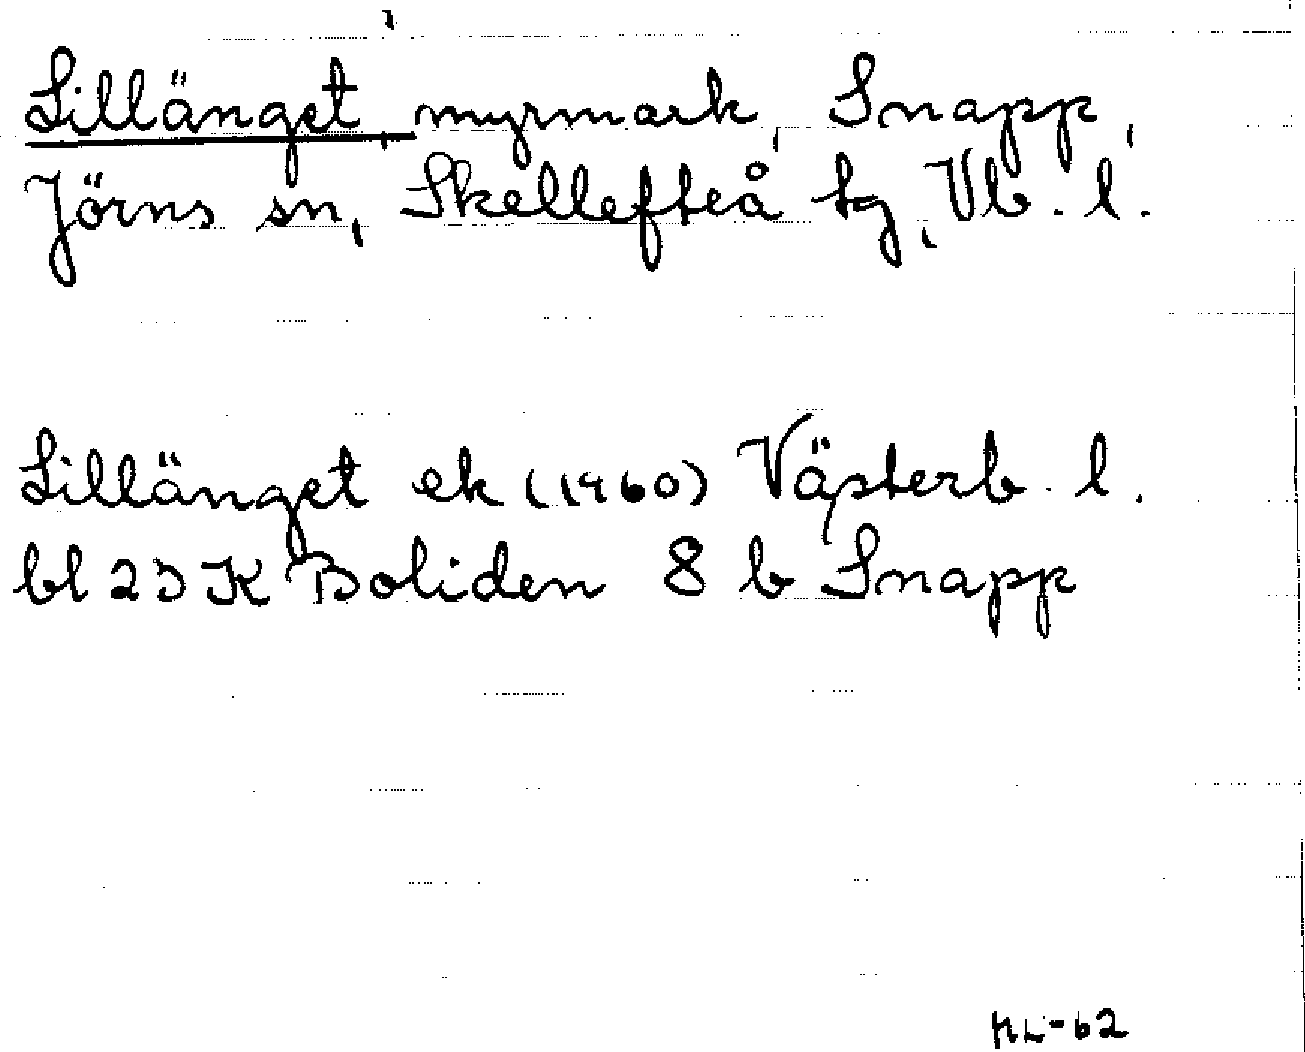 Lillänget, myrmark, Snapp,
Jörns sn, Skellefteå tg, Vb. l.
Lillänget ek (1960) Västerb. l.
bl 23 K Boliden 8 b Snapp
ML-62